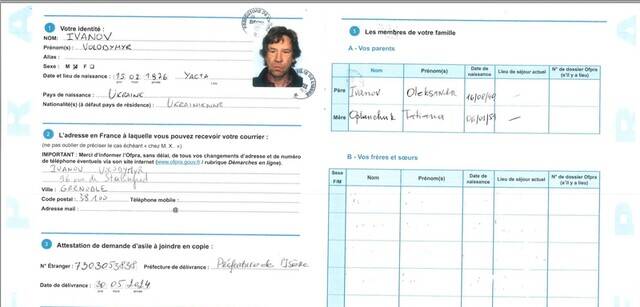 1 Votre identité :
NOM: IVANOV
Prénom(s) : VOLODYMYR
Alias :
Sexe : M F
Date et lieu de naissance : 15 02 1976
Pays de naissance : UKRAINE
Nationalité(s) (à défaut pays de résidence) : UKRAINIENNE
2 L'adresse en France à laquelle vous pouvez recevoir votre courrier :
(ne pas oublier de préciser le cas échéant « chez M. X. »)
IMPORTANT : Merci d'informer l'Ofpra, sans délai, de tous vos changements d'adresse et de numéro
de téléphone éventuels via son site internet (www.ofpra.gouv.fr / rubrique Démarches en ligne).
IVANOV
Ville : GRENOBLE
Code postal : 38100 Téléphone mobile :
Adresse mail : @
3 Attestation de demande d'asile à joindre en copie :
N° Étranger : 7303053838 Préfecture de délivrance : Préfecture de l'Isère
Date de délivrance : 30 05 2024
5 Les membres de votre famille
A - Vos parents
Nom Prénom(s) Date de naissance Lieu de séjour actuel N° de dossier Ofpra (s'il y a lieu)
Père Ivanov Oleksandr
Mère
B - Vos frères et sœurs
Sexe F/M Nom Prénom(s) Date de naissance Lieu de séjour actuel N° de dossier Ofpra (s'il y a lieu)